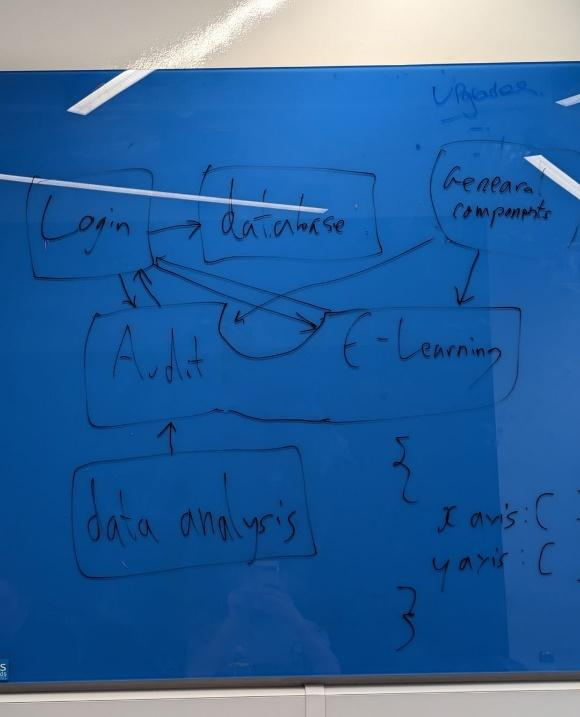 Upgrades.
Login
database
Genearal
components
Audit
E-Learning
data analysis
{
x axis: (
y axis: (
}